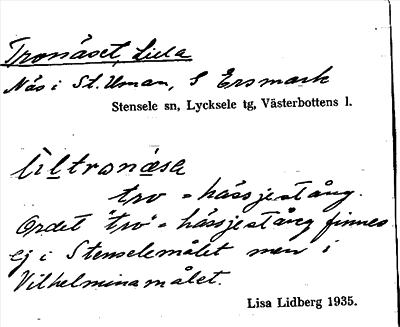 Tronäset, Lilla
Näs i St. Uman, S Ersmark
Stensele sn, Lycksele tg, Västerbottens l.
liltronäsa
tro = hässjestång.
Ordet "tro" = hässjestång finnes
ej i Stenselemålet men i
Vilhelminamålet.
Lisa Lidberg 1935.